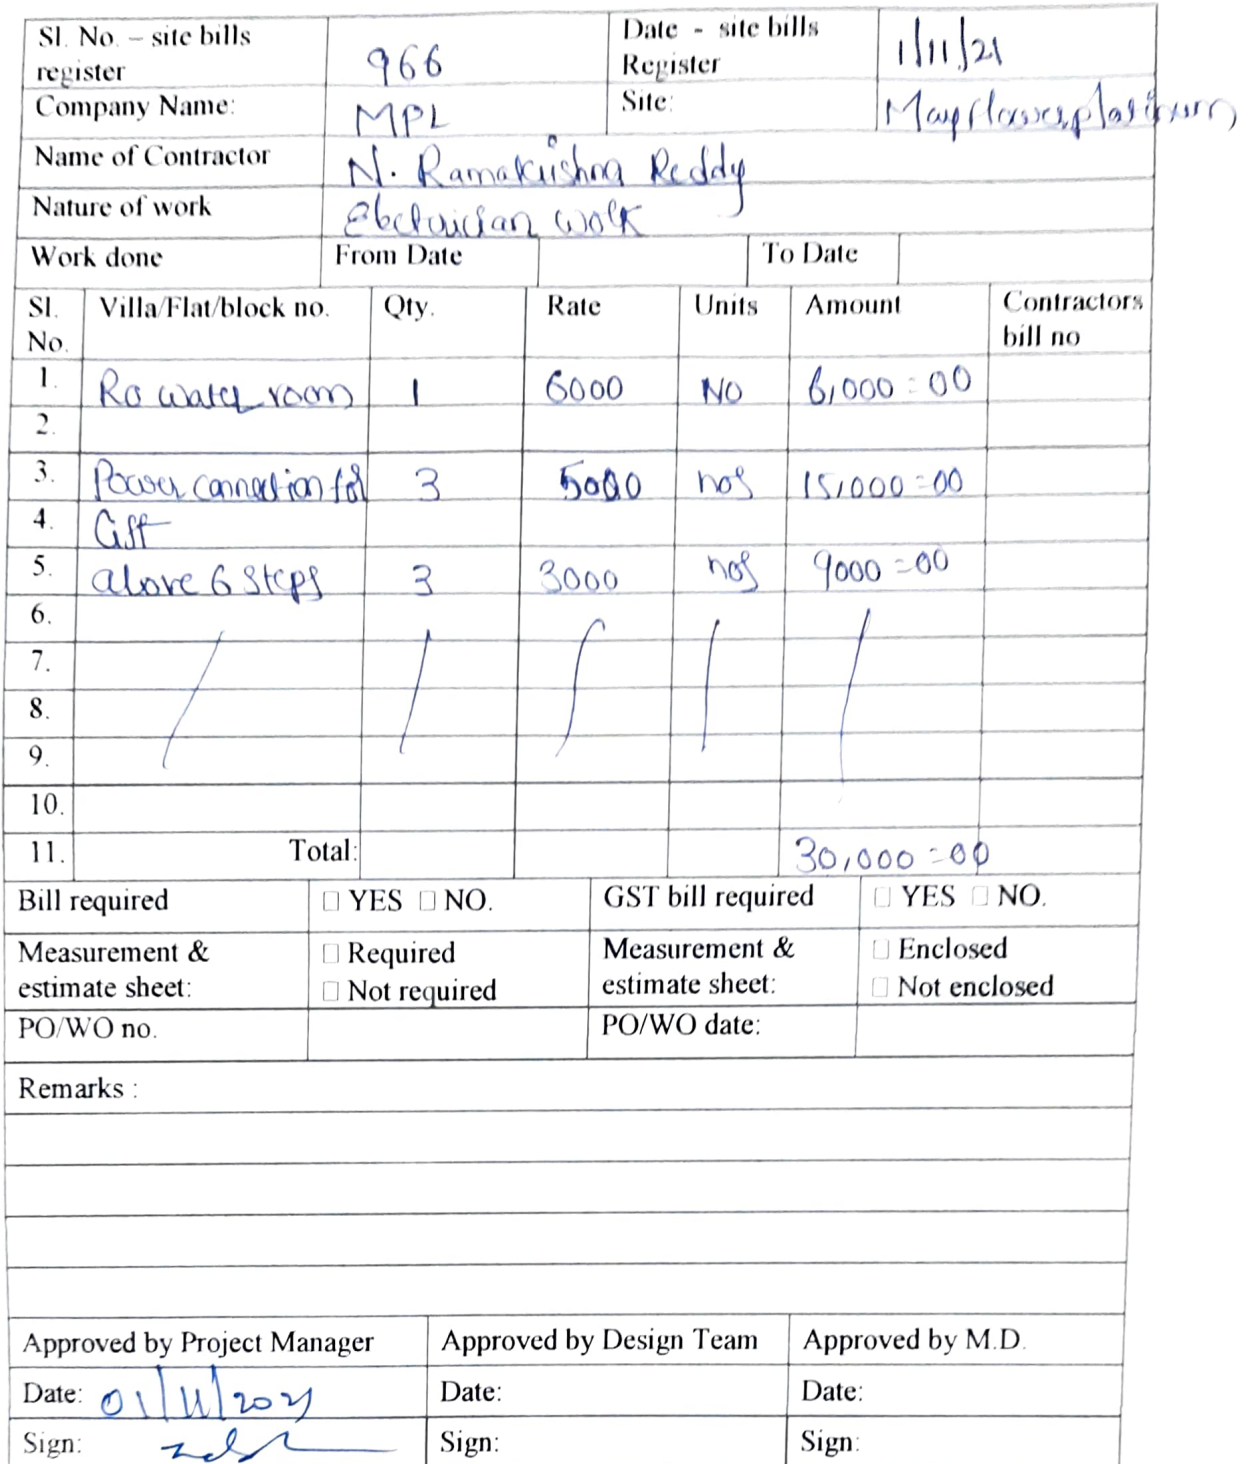 Sl. No. – site bills register 966 Date - site bills Register 1/11/21
Company Name: MPL Site: Mayflowerplatinum
Name of Contractor N. Ramakrishna Reddy
Nature of work Electrician work
Work done From Date To Date
Sl. No. Villa/Flat/block no. Qty. Rate Units Amount Contractors bill no
1. Ro water room 1 6000 NO 6,000=00
2.
3. Power connection for 3 5000 nos 15,000=00
4. Lift
5. above 6 steps 3 3000 nos 9000=00
6.
7.
8.
9.
10.
11. Total: 30,000=00
Bill required □ YES □ NO. GST bill required □ YES □ NO.
Measurement & estimate sheet: □ Required □ Not required Measurement & estimate sheet: □ Enclosed □ Not enclosed
PO/WO no. PO/WO date:
Remarks :
Approved by Project Manager Approved by Design Team Approved by M.D.
Date: 01/11/2021 Date: Date:
Sign: Sign: Sign: